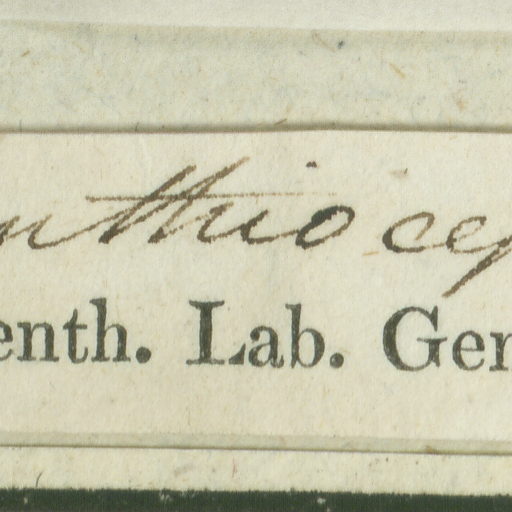 nthiocep
enth. Lab. Gen